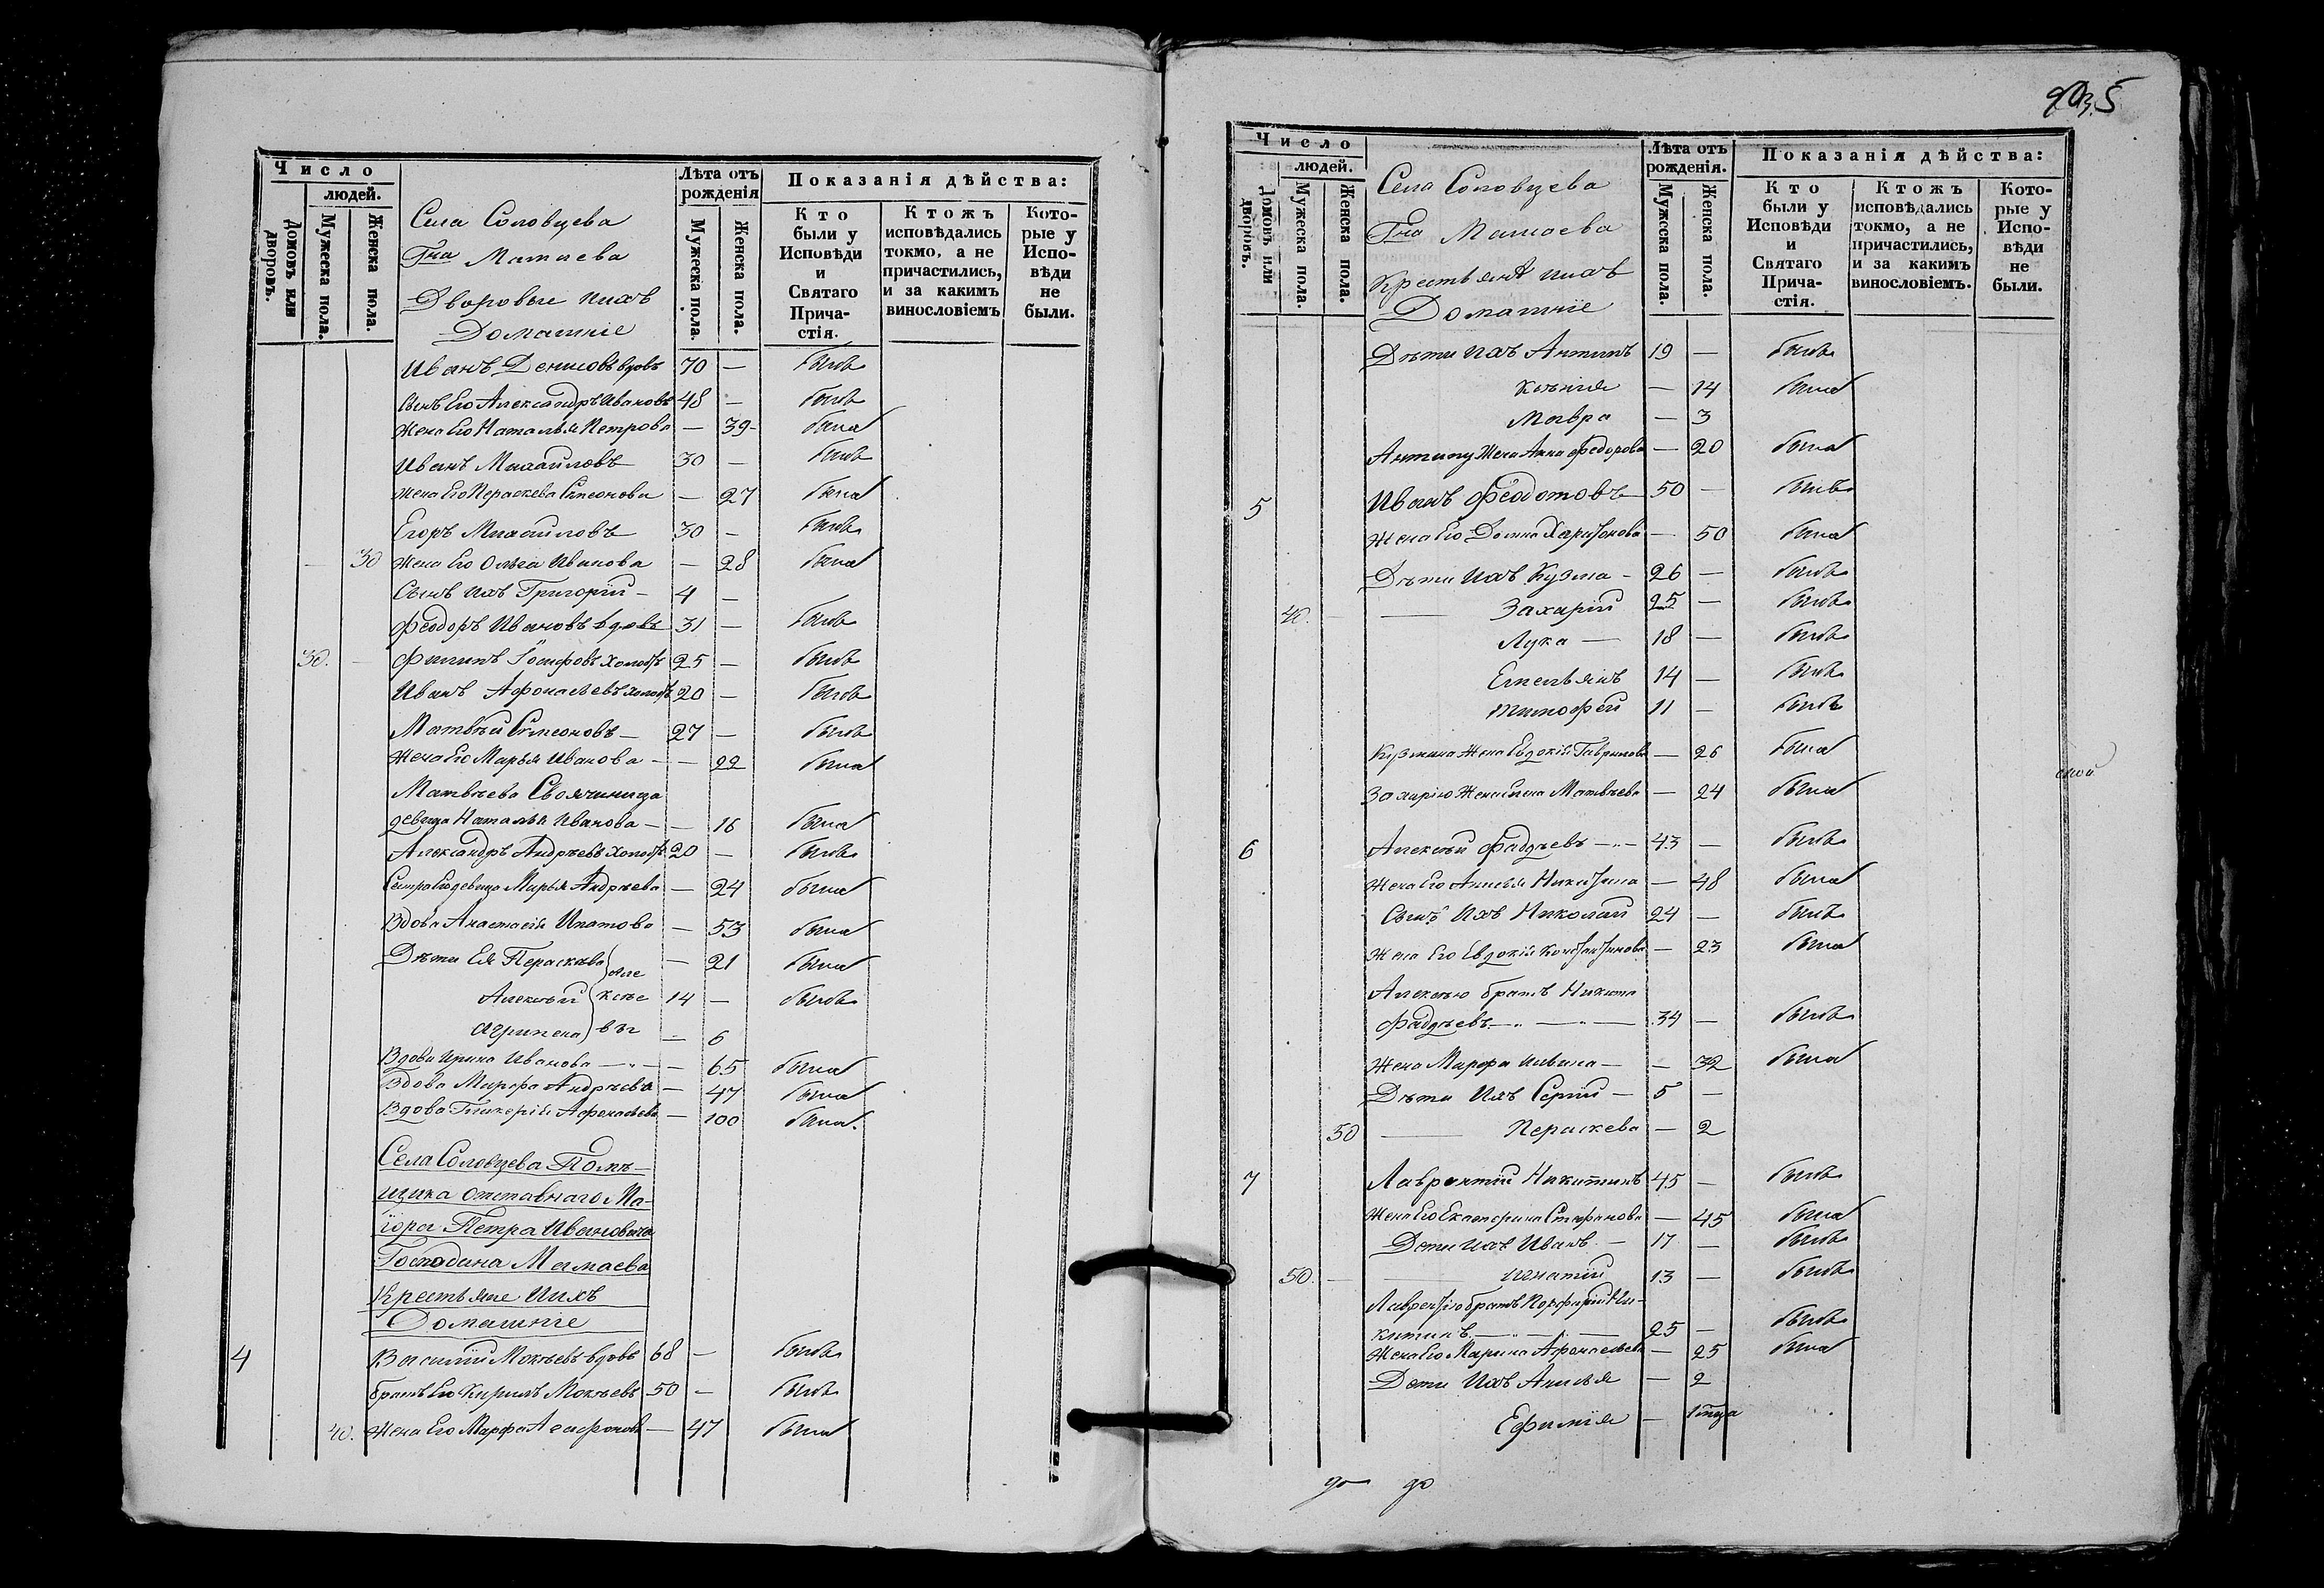 Число
людей.
Домовъ или дворовъ.
Мужеска пола.
Женска пола.
Села Соловцева
Гна Мамаева
Дворовые ихъ
Домашніе
Лѣта отъ рожденія
Мужеска пола.
Женска пола.
Показанія дѣйства:
Кто были у Исповѣди и Святаго Прича- стія.
Ктожъ исповѣдались токмо, а не причастились, и за какимъ винословіемъ
Кото- рые у Испо- вѣди не были.
Иванъ Денисовъ вдовъ 70 — былъ
Сынъ Его Александръ Ивановъ 48 — былъ
Жена Его Наталья Петрова — 39 была
Иванъ Михайловъ 30 — былъ
Жена Его Пераскева Симеонова — 27 была
Егоръ Михайловъ 30 — былъ
— 30 Жена Его Ольга Иванова — 28 была
Сынъ Ихъ Григорій 4 —
Феодоръ Ивановъ вдовъ 31 — былъ
30. — Филипъ Іосифовъ холостъ 25 — былъ
Иванъ Афонасьевъ холостъ 20 — былъ
Матвѣй Симеоновъ 27 — былъ
Жена Его Марья Иванова — 22 была
Матвѣева Своячиница
девица Наталья Иванова — 16 была
Александръ Андреевъ холостъ 20 — былъ
Сестра Его девица Марья Андреева — 24 была
Вдова Анастасія Ипатова — 53 была
Дѣти Ея Пераскева — 21 была
Алексѣй 14 — былъ
Агрипена — 6
Алексѣевы
Вдова Ирина Иванова — 65 была
Вдова Марфа Андреева — 47 была
Вдова Гликерія Афонасьева — 100 была.
Села Соловцева Помѣ-
щика отставнаго Ма-
іора Петра Ивановича
Господина Мамаева
Крестьяне Ихъ
Домашніе
4 Василій Мокеевъ вдовъ 68 — былъ
братъ Его Кирилъ Мокеевъ 50 — былъ
40. Жена Его Марфа — 47 была
Число
людей.
Домовъ или дворовъ.
Мужеска пола.
Женска пола.
Села Соловцева
Гна Мамаева
Крестьянѣ ихъ
Домашніе
Лѣта отъ рожденія.
Мужеска пола.
Женска пола.
Показанія дѣйства:
Кто были у Исповѣди и Святаго Прича- стія.
Ктожъ исповѣдались токмо, а не причастились, и за какимъ винословіемъ.
Кото- рые у Испо- вѣди не были.
Дѣти Ихъ Антипъ 19 — былъ
Ксенія — 14 была
Мавра — 3
Антипу Жена Анна Федорова — 20 была
5 Иванъ Феодотовъ 50 — былъ
Жена Его Домна Харитонова — 50 была
Дѣти Ихъ Кузма 26 — былъ
40. — Захарій 25 — былъ
Лука 18 — былъ
Емельянъ 14 — былъ
тимофей 11 — былъ
Кузмина Жена Евдокія Гаврилова — 26 была
Захарію Жена Елена Матвѣева — 24 была
6 Алексѣй Фаддѣевъ 43 — былъ
Жена Его Анисья Никитина — 48 была
Сынъ Ихъ Николай 24 — былъ
Жена Его Евдокія Константинова — 23 была
Алексѣю братъ Никита
Фаддѣевъ 34 — былъ
Жена Марфа — 32 была
Дѣти Ихъ Сергій 5 —
50 Пераскева — 2
7 Лаврентій Никитинъ 45 — былъ
Жена Его Екатерина Стефанова — 45 была
Дети Ихъ Иванъ 17 — былъ
50. — Игнатій 13 — былъ
Лаврентію братъ Порфирій Ни-
китинъ 25 — былъ
Жена Его Марина Афонасьева — 25 была
Дети Ихъ Анисья — 2
Ефимія —